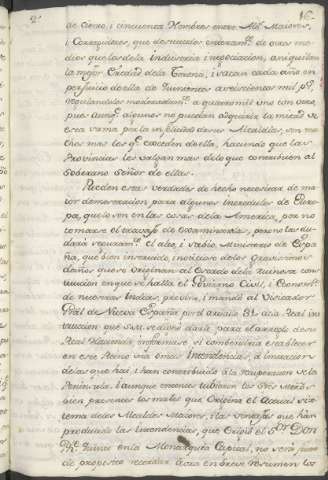 de Ciento, i cincuenta Hombres entre Alc.s Maiores,
i Corregidores, que desnudos enteram.te de otros me
dios que los de la industria i negociacion, aniquilan
la mejor de la Corona, i sacan cada año en
perjuicio de ella de Quinientos a seiscientos mil p.s,
regulandoles moderadam.te a quatro mil uno con otro,
pues aunq.e algunos no puedan adquirir la mitad de
esta suma por la infelicidad de sus Alcaldias, son mu
chos mas los q.e exceden de ella, haciendo que las
Provincias les valgan mas de lo que contribuien al
Soberano Señor de ellas.
Pueden estas verdades de hecho necesitar de ma
ior demostracion para algunos incredulos de Euro
pa, que lo son en las cosas de la America, por no
tomarse el trabajo de examinarlas, pero no las du
dará seguram.te el alto, i sabio Ministerio de Espa
ña, que bien instruido, i noticioso de los gravisimos
daños que se originan al Estado de la ruinosa cons
titucion en que se halla el Govierno Civil, i Economico
de nuestras Indias, previno, i mandó al Visitador
Gral de Nueva España por el articulo 31 de la Real ins
truccion que S.M. se dignó darle para el arreglo de su
Real Hacienda, informase si combendria establecer
en este Reino una ó mas Intendencias, á imitacion
de las que hai, i han contribuido á la recuperacion de la
Peninsula. I aunque entonces tubieron los Rs. Minis
bien presentes los males que origina el actual sis
tema de los Alcaldes Maiores, i las ventajas que han
producido las Intendencias, que erigió el S.or Don
Ph.e Quinto en la Monarquia Capital, no será fuera
de proposito recordar aora en breve resumen los